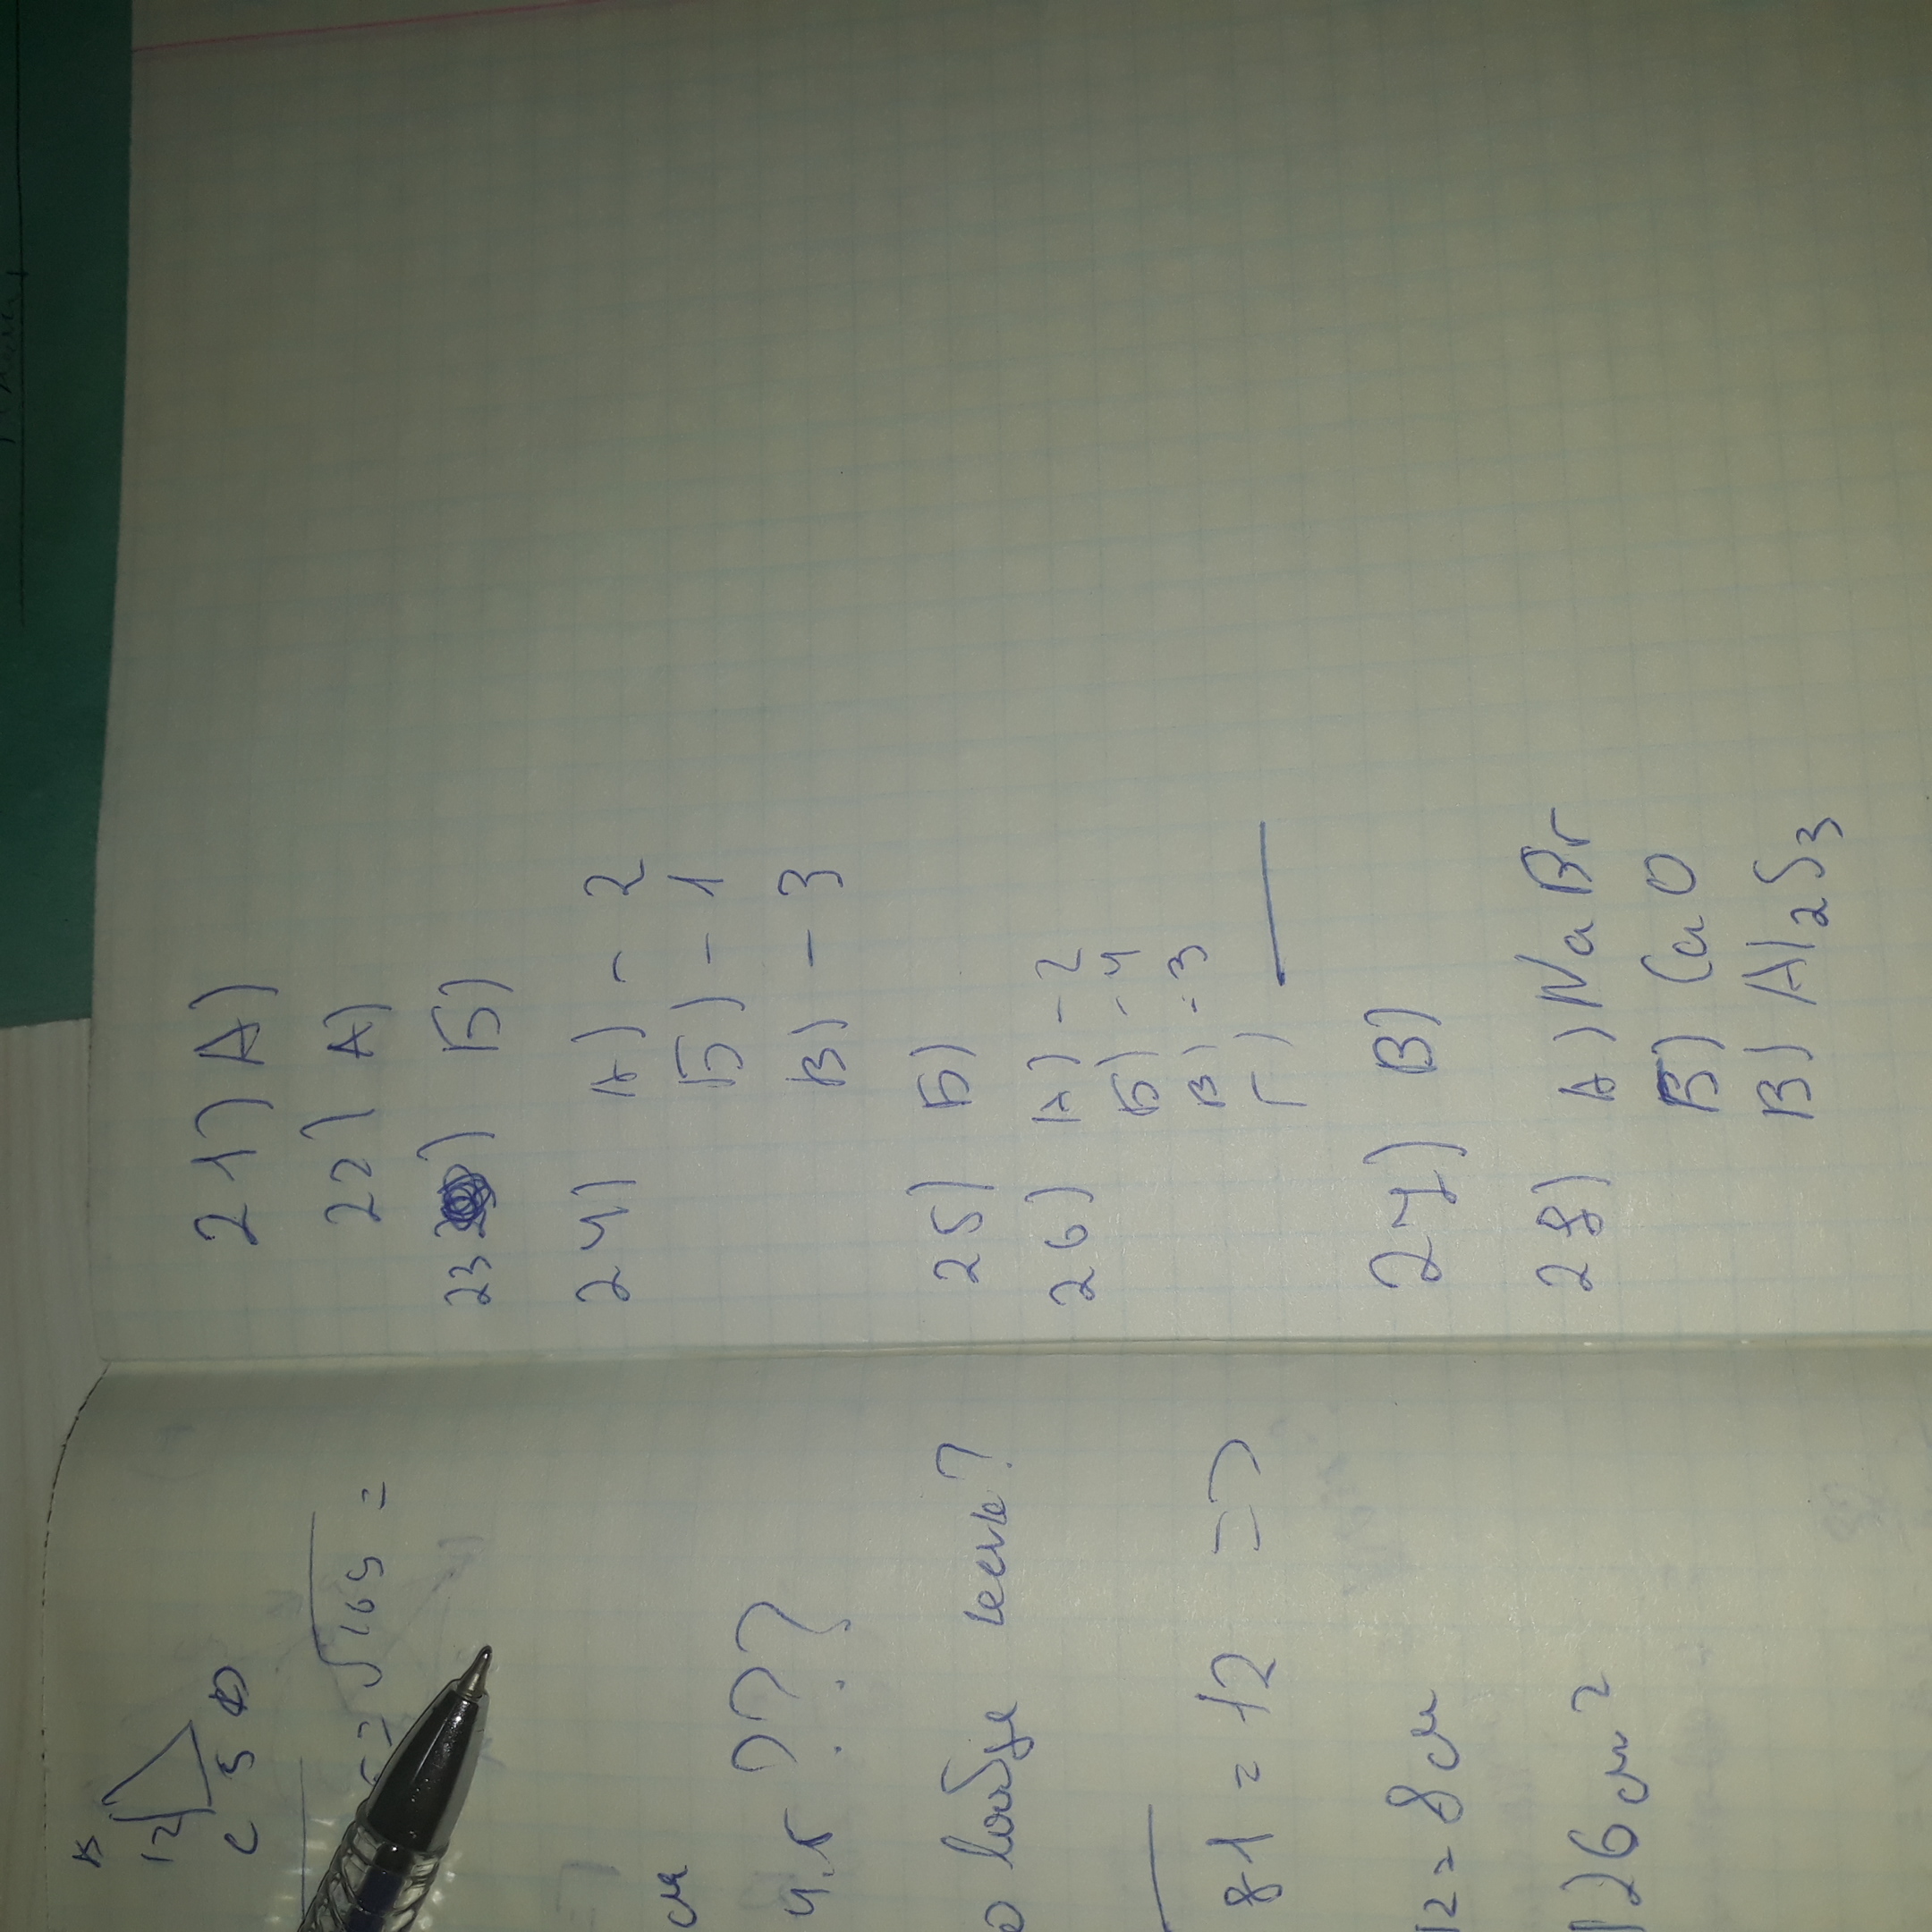 21) А)
22) А)
23 Б)
24) А) - 2
Б) - 1
В) - 3
25) Б)
26) А) - 2
Б) - 4
В) - 3
Г) —
27) В)
28) А) NaBr
Б) CaO
В) Al₂S₃
12
C 5
√169 =
см
???
81 = 12 =>
12 = 8 см
126 см²